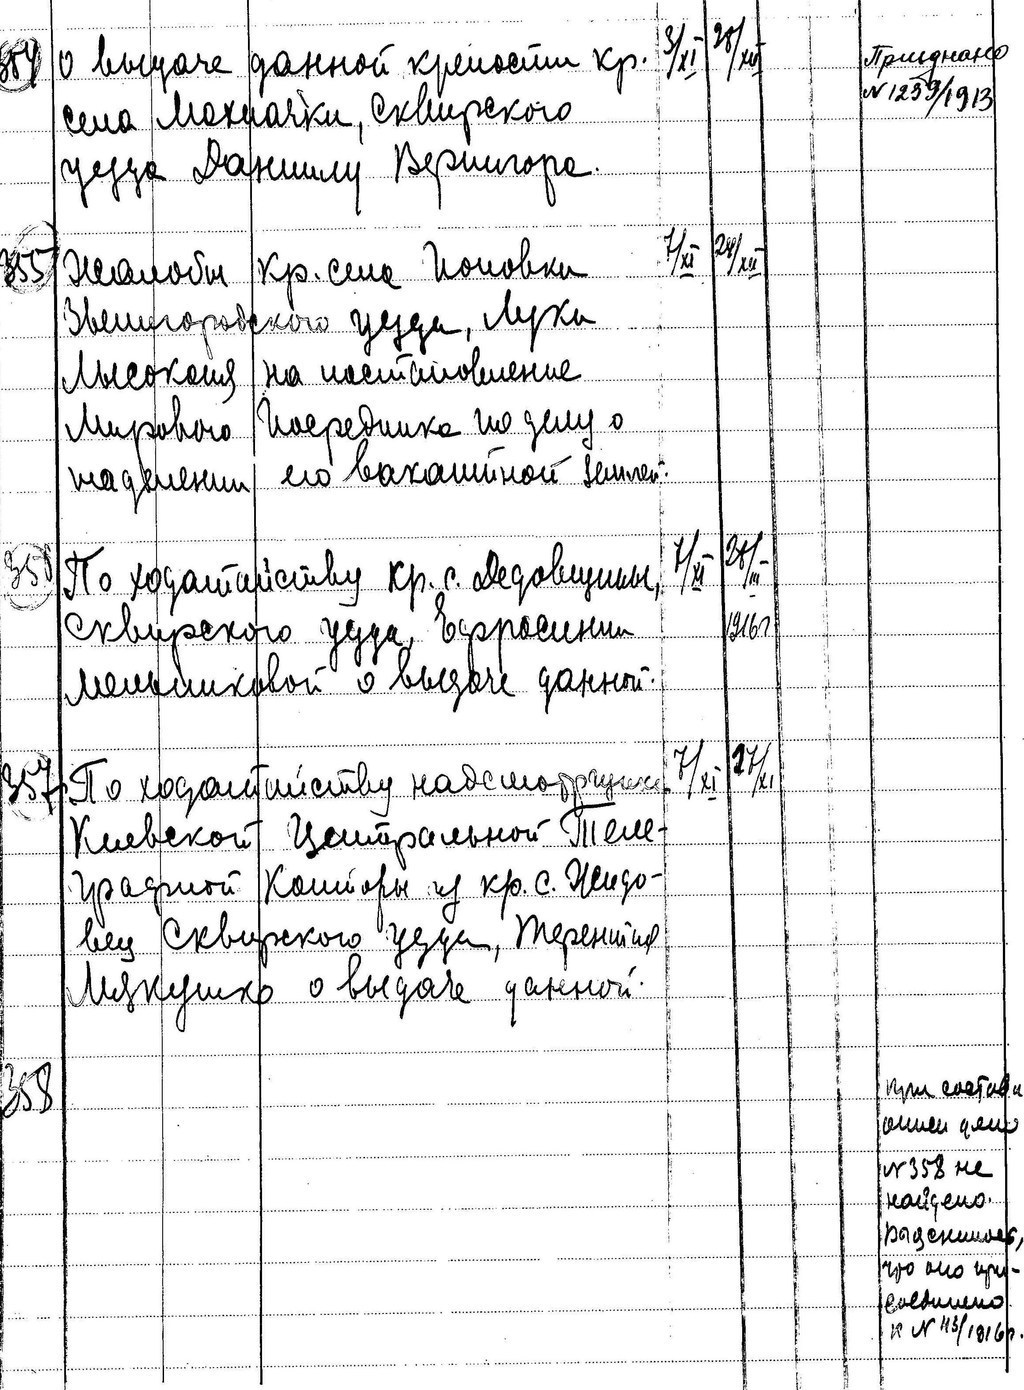 354 О выдаче данной крепости кр. 3/XI 28/XII
села Махначки, Сквирского
уезда Даниилу Вернигора.
Придано
№ 1259/1913
355 Жалобы кр. села Поповки 7/XI 24/XII
Звенигородского уезда, Луки
Лысоконя на постановление
Мирового Посредника по делу о
наделении его вакантной землей.
356 По ходатайству кр. с. Дедовщины, 7/XI 28/III
Сквирского уезда, Ефросинии 1916 г
Мельниковой о выдаче данной.
357 По ходатайству надсмотрщика 7/XI 27/XI
Киевской Центральной Теле-
графной Конторы из кр. с. Жидо-
вец Сквирского уезда, Терентия
Мякушко о выдаче данной.
358
при состав.
описи дело
№ 358 не
найдено.
Выяснилось,
что оно при-
соединено
к № 43/1916 г.